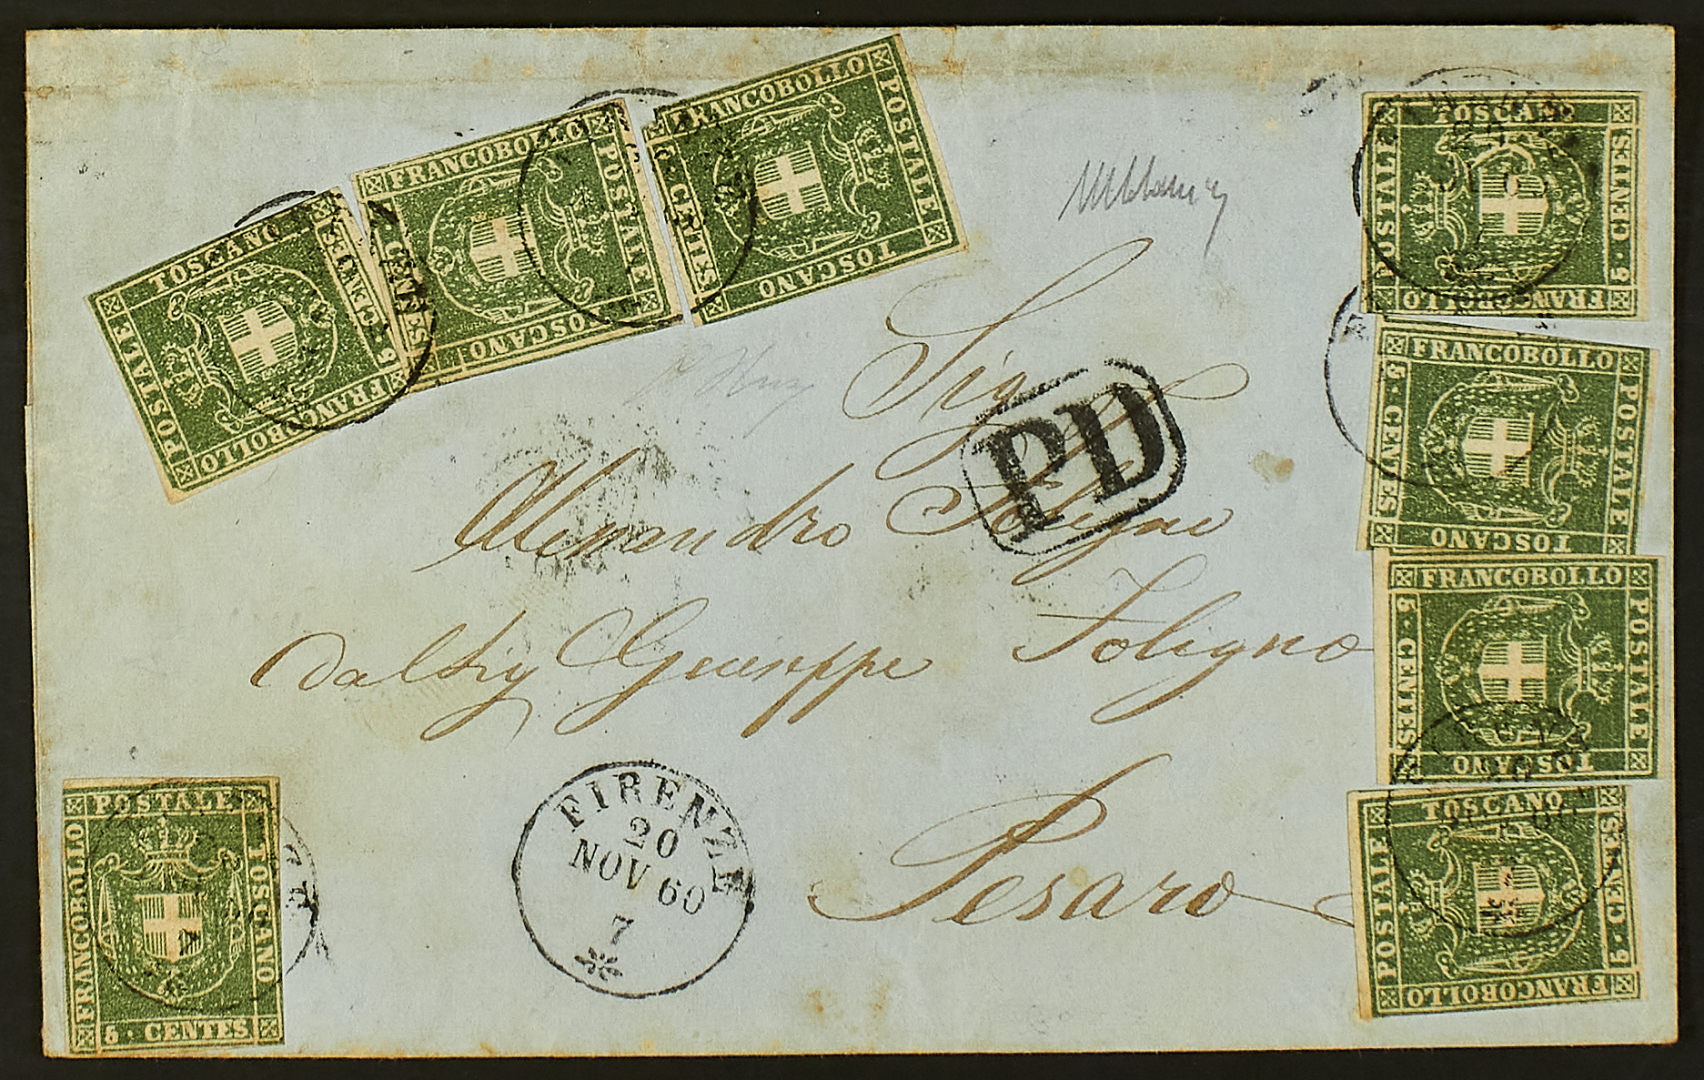 FRANCOBOLLO POSTALE TOSCANO 5 · CENTES
FRANCOBOLLO POSTALE TOSCANO CENTES
FRANCOBOLLO POSTALE TOSCANO CENTES
FRANCOBOLLO POSTALE TOSCANO 5 · CENTES
FRANCOBOLLO POSTALE TOSCANO 5 · CENTES
FRANCOBOLLO POSTALE TOSCANO 5 · CENTES
FRANCOBOLLO POSTALE TOSCANO 5 · CENTES
Sig
PD
Alessandro Foligno
Dal Sig Giuseppe Foligno
Pesaro
FIRENZE
20
NOV 60
7
FRANCOBOLLO POSTALE TOSCANO 5 · CENTES